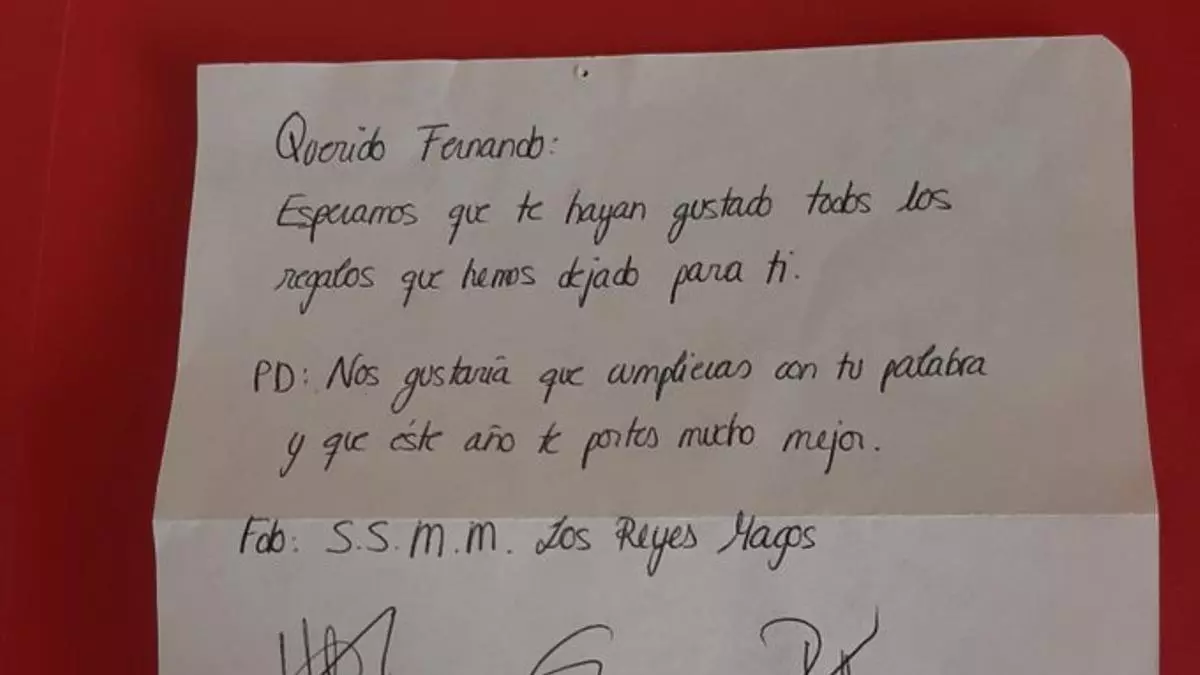 Querido Fernando:
Esperamos que te hayan gustado todos los
regalos que hemos dejado para ti.
PD: Nos gustaría que cumplieras con tu palabra
y que éste año te portes mucho mejor.
Fdo: S.S.M.M. Los Reyes Magos